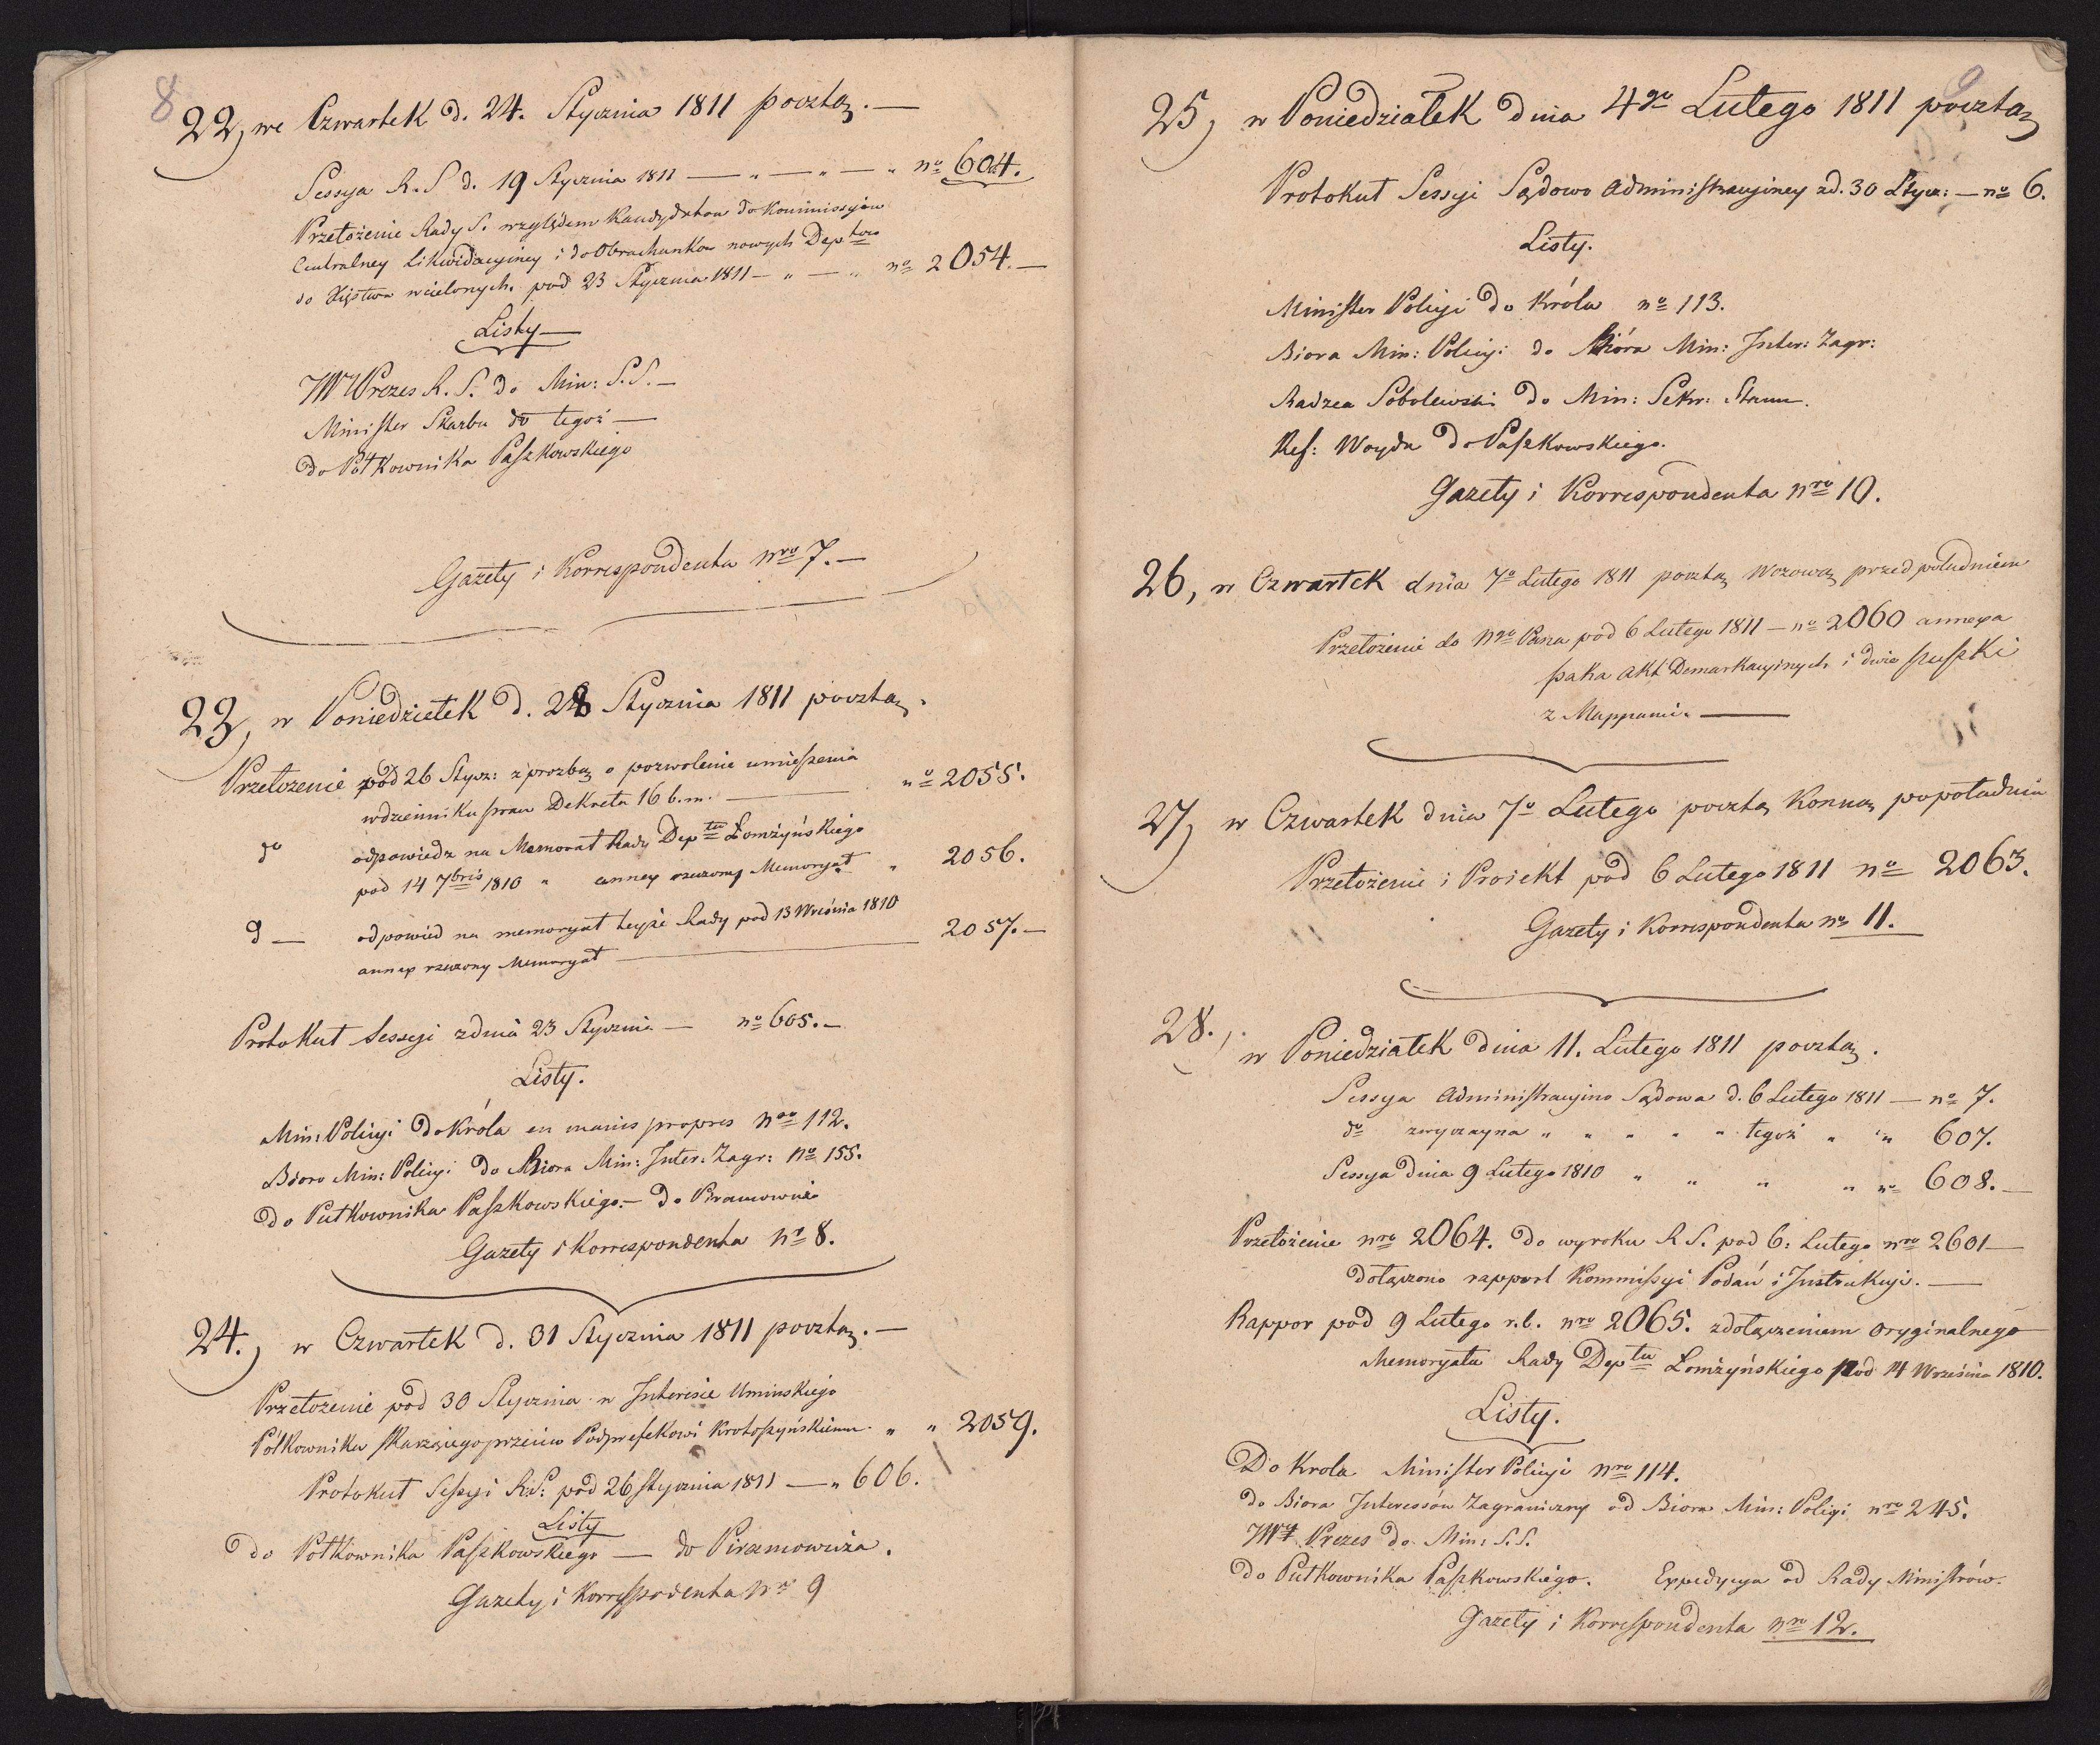 8
22, we Czwartek d. 24. Stycznia 1811 pocztą. —
Sessya R. S d. 19 Stycznia 1811 — „ — „ — „ no 604.
Przełożenie Rady S. względem Kandydatow do Kommissyiow
Centralney Likwidacyiney i do Obrachunków nowych Dep tow
do Xięstwa wcielonych. pod 23 Stycznia 1811 — „ — „ no 2054. —
Listy —
JW Prezes R. S. do Min: S. S. —
Minister Skarbu do tegoż —
do Półkownika Paszkowskiego
Gazety i Korrespondenta nro 7. —
23, w Poniedziełek d. 28 Stycznia 1811 pocztą.
Przełozenie pod 26 Stycz: z prozbą o pozwolenie umieszenia
w dzienniku praw Dekretu 16 b. m. — no 2055.
do odpowiedz na Memorał Rady Dep tu Łomżyńskiego
pod 14 7bris 1810 „ annex rzeczony Memoryał „ 2056.
d — odpowied na memoryał teyże Rady pod 13 Września 1810
annex rzeczony Memoryał — 2057. —
Protokuł Sessyi z dnia 23 Stycznia — no 605. —
Listy.
Min: Policyi do Króla en mains propres nro 112.
Bioro Min: Policyi do Biora Min: Inter: Zagr: no 155.
do Pułkownika Paszkowskiego. — do Piramowicza
Gazety i Korrespondenta nr 8.
24., w Czwartek d. 31 Stycznia 1811 pocztą. —
Przełozenie pod 30 Stycznia w Interesie Uminskiego
Półkownika skarżącego przeciw Podprefektowi Krotoszyńskiemu. „ „ 2059.
Protokuł Sessyi R. S: pod 26 Stycznia 1811 — „ 606.
Listy
do Półkownika Paszkowskiego — do Piramowicza.
Gazety i Korrespondenta Nro 9
9
25, w Poniedziałek dnia 4go Lutego 1811 pocztą
Protokuł Sessyi Sądowo administracyiney z d. 30 Stycz: — no 6.
Listy.
Minister Policyi do Króla no 113.
Biora Min: Policyi do Bióra Min: Inter: Zagr:
Radzca Sobolewski do Min: Sekr: Stanu.
Ref: Woyda do Paszkowskiego.
Gazety i Korrespondenta nro 10.
26, w Czwartek dnia 7o Lutego 1811 pocztą wozową przed południem
Przełożenie do Ngo Pana pod 6 Lutego 1811 — no 2060 annexa
paka akt Demarkacyinych i dwie puszki
z Mappami. —
27, w Czwartek dnia 7o Lutego pocztą Konną popołudniu
Przełożenie i Proiekt pod 6 Lutego 1811 no 2063.
Gazety i Korrespondenta no 11.
28., w Poniedziałek dnia 11. Lutego 1811 pocztą.
Sessya Administracyino Sądowa d. 6 Lutego 1811 — no 7.
do zwyczayna „ „ „ „ „ tegoż „ „ 607.
Sessya dnia 9 Lutego 1810 „ „ „ „ no 608. —
Przełożenie nro 2064. do wyroku R S. pod 6: Lutego nro 2601 —
dołączono rapport Kommissyi Podań i Instrukcyi. —
Rappor pod 9 Lutego r. b. nro 2065. z dołączeniem oryginalnego
Memoryału Rady Dep tu Łomżyńskiego pod 14 Września 1810.
Listy.
Do Krola Minister Policyi nro 114.
do Biora Interessów Zagraniczny od Biora Min: Policyi nro 245.
JW Prezes do Min: S. S.
do Pułkownika Paszkowskiego. Expedycya od Rady Ministrów.
Gazety i Korrespondenta nro 12.